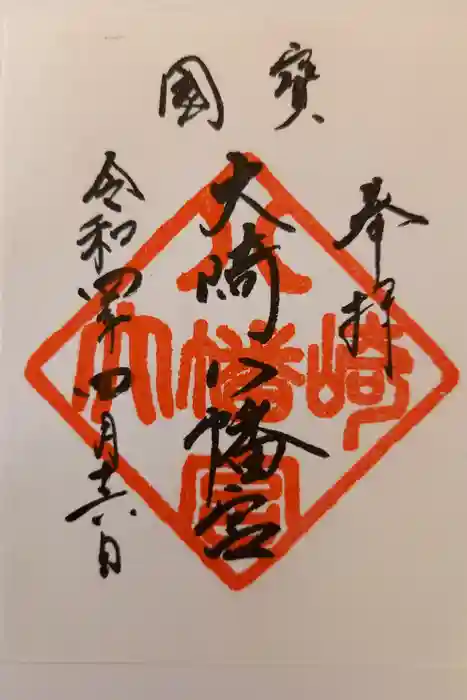 國寶
奉拝
大崎八幡宮
令和四年四月十六日
八
大幡崎
宮